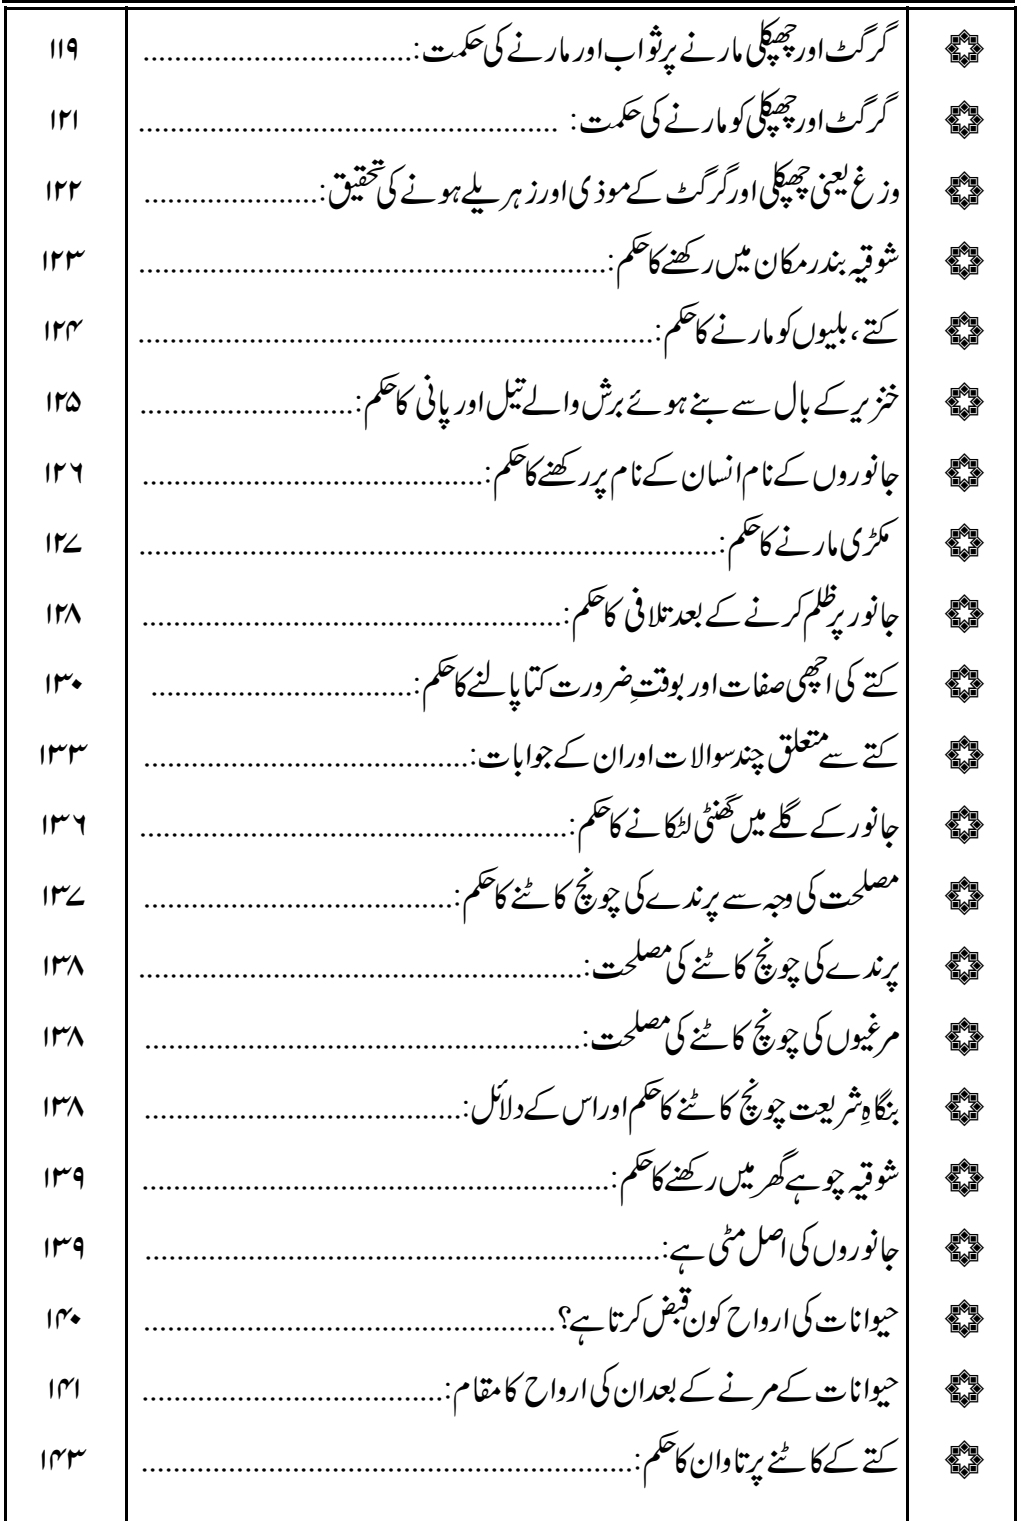 گرگٹ اور چھپکلی مارنے پر ثواب اور مارنے کی حکمت:.................................. ۱۱۹
گرگٹ اور چھپکلی کو مارنے کی حکمت: ..................................................... ۱۲۱
وزغ یعنی چھپکلی اور گرگٹ کے موذی اور زہریلے ہونے کی تحقیق:...................... ۱۲۲
شوقیہ بندر مکان میں رکھنے کا حکم:........................................................... ۱۲۳
کتے، بلیوں کو مارنے کا حکم:................................................................. ۱۲۴
خنزیر کے بال سے بنے ہوئے برش والے تیل اور پانی کا حکم:........................... ۱۲۵
جانوروں کے نام انسان کے نام پر رکھنے کا حکم:........................................... ۱۲۶
مکڑی مارنے کا حکم:......................................................................... ۱۲۷
جانور پر ظلم کرنے کے بعد تلافی کا حکم:..................................................... ۱۲۸
کتے کی اچھی صفات اور بوقتِ ضرورت کتا پالنے کا حکم:................................. ۱۳۰
کتے سے متعلق چند سوالات اور ان کے جوابات:......................................... ۱۳۳
جانور کے گلے میں گھنٹی لٹکانے کا حکم:...................................................... ۱۳۶
مصلحت کی وجہ سے پرندے کی چونچ کاٹنے کا حکم:....................................... ۱۳۷
پرندے کی چونچ کاٹنے کی مصلحت:........................................................ ۱۳۸
مرغیوں کی چونچ کاٹنے کی مصلحت:....................................................... ۱۳۸
بنگاہِ شریعت چونچ کاٹنے کا حکم اور اس کے دلائل:........................................ ۱۳۸
شوقیہ چوہے گھر میں رکھنے کا حکم:........................................................... ۱۳۹
جانوروں کی اصل مٹی ہے:................................................................. ۱۳۹
حیوانات کی ارواح کون قبض کرتا ہے؟.................................................... ۱۴۰
حیوانات کے مرنے کے بعد ان کی ارواح کا مقام:...................................... ۱۴۱
کتے کے کاٹنے پر تاوان کا حکم:.............................................................. ۱۴۳